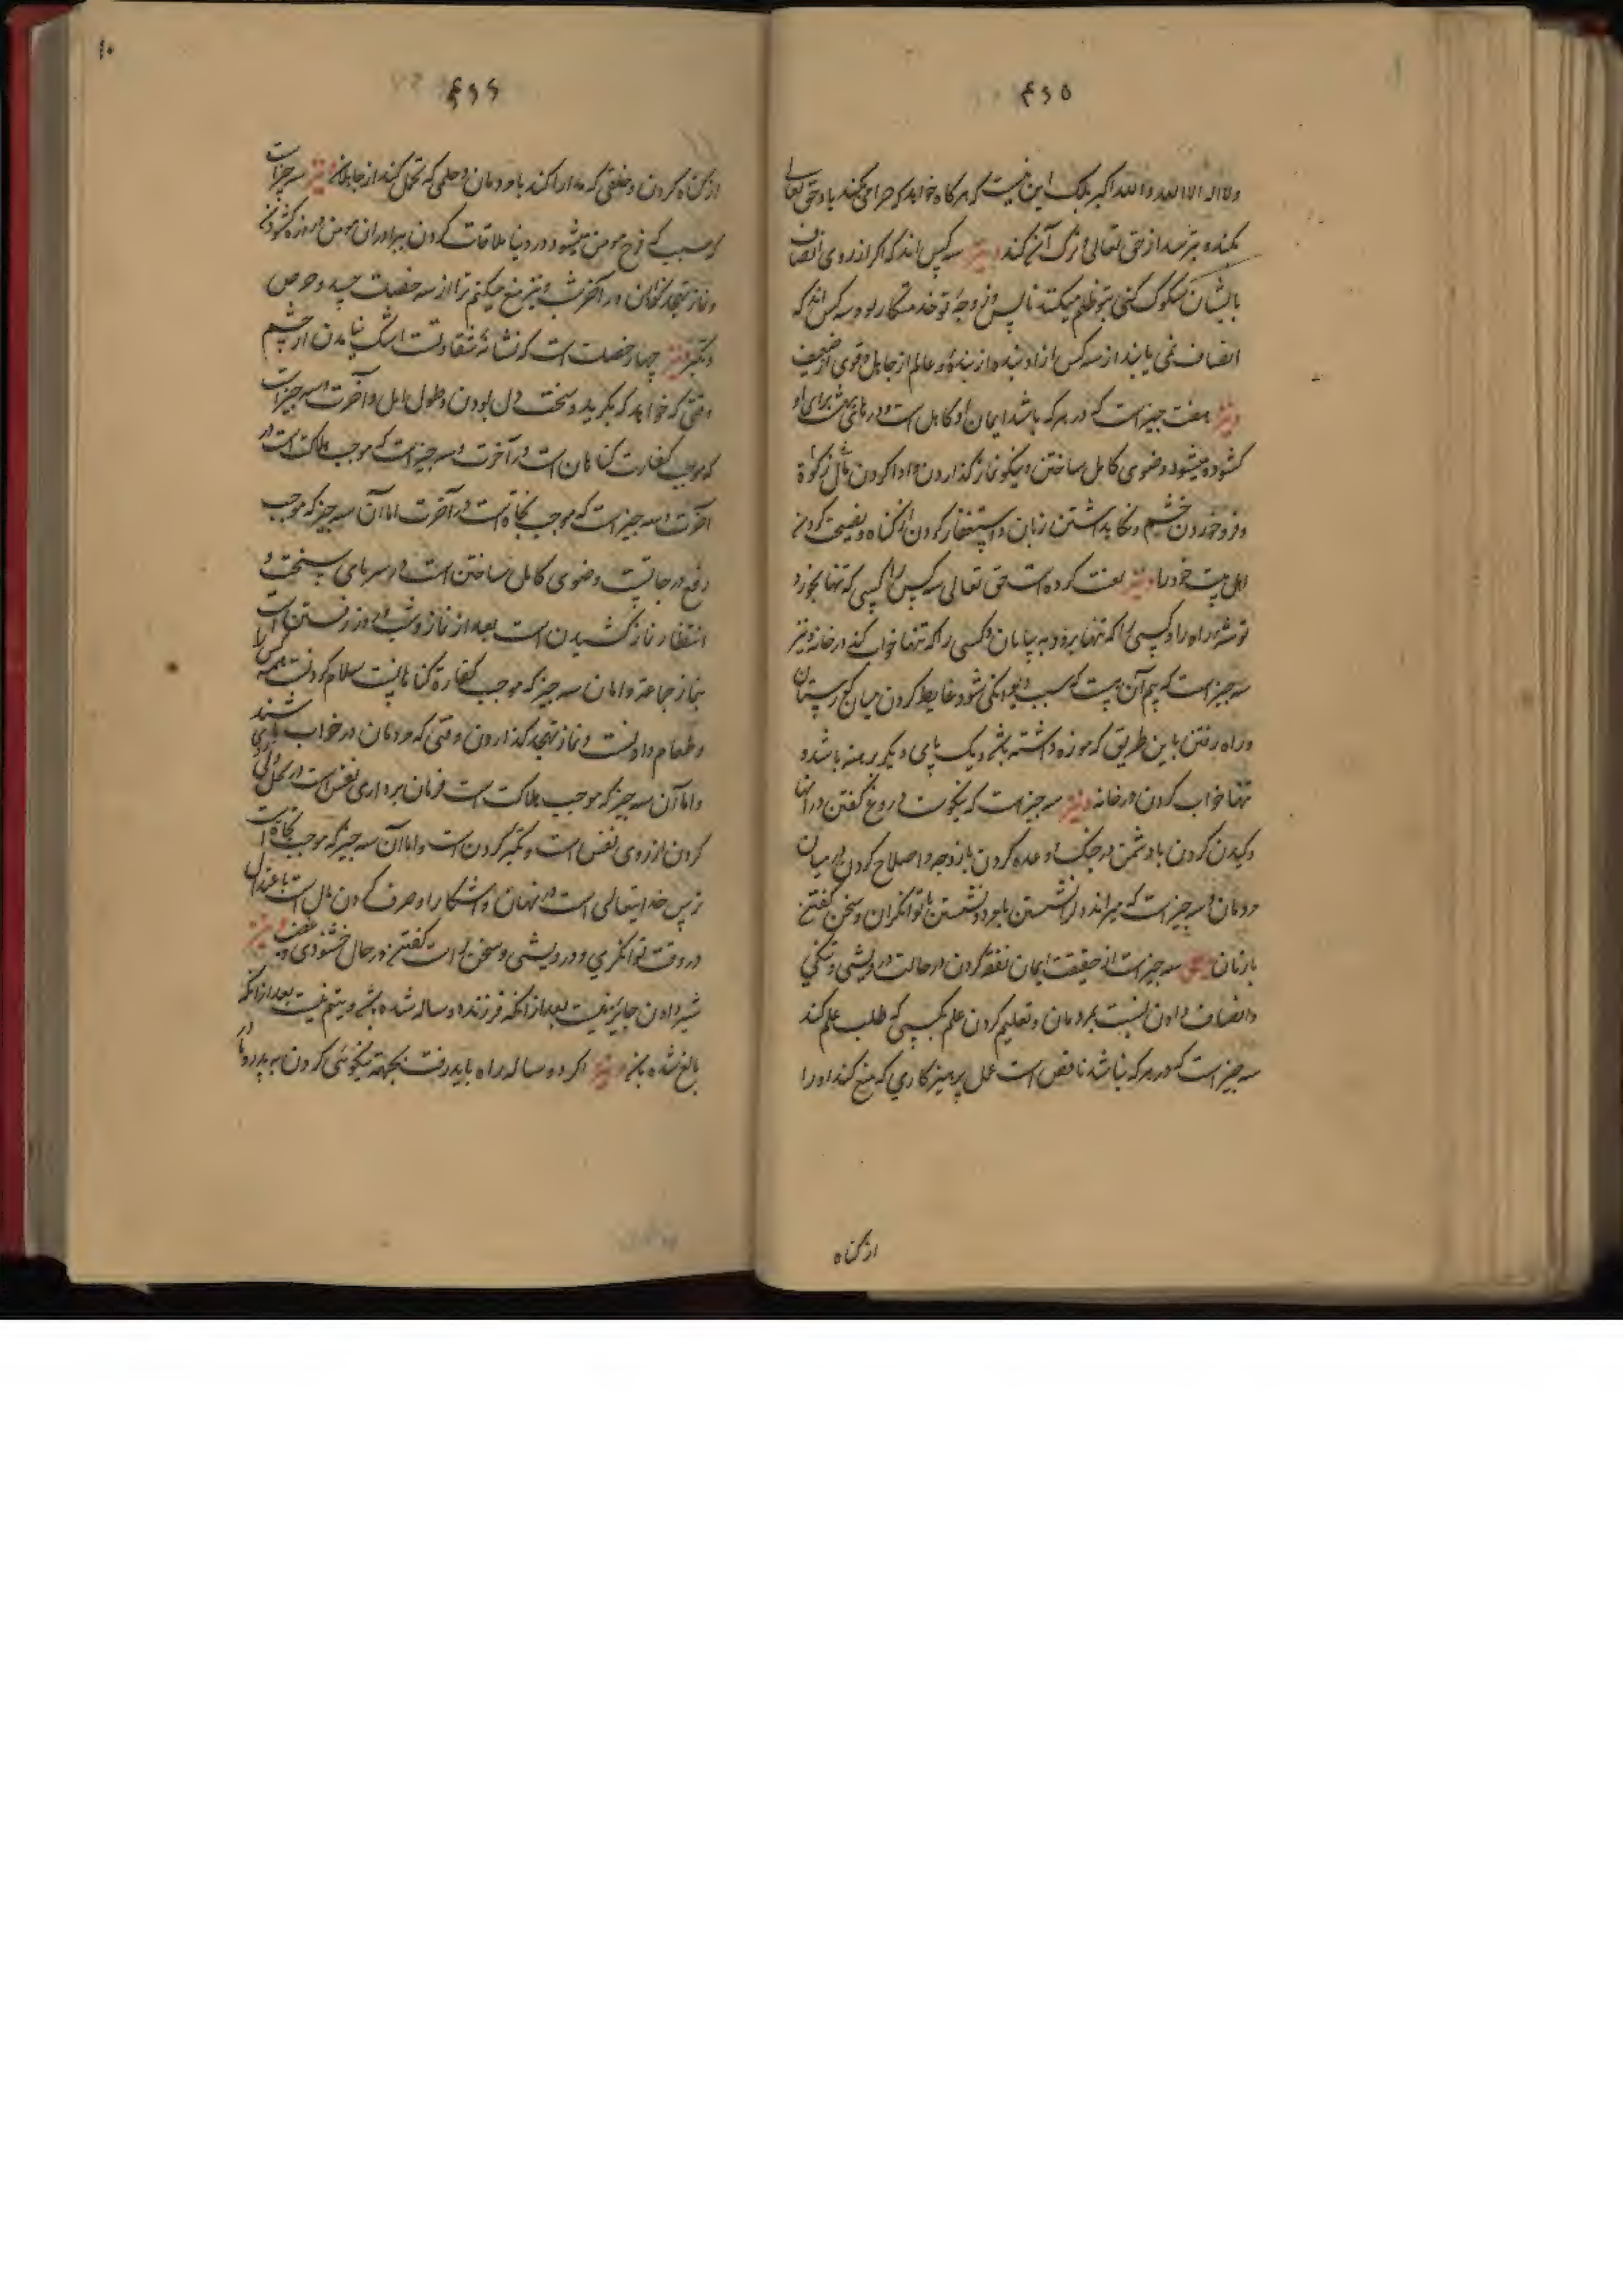 ۴۶۵
ولا اله الا الله والله اکبر بلکه این نیست که هرکاه خواهد که حرامی بکند یاد حق تعالی
بکند و بترسد از حق تعالی و ترک آن کند و نیز سه کس اند که اکر از روی انصاف
بایشان سلوک کنی بتو ظلم میکنند ناکس و زوجهٔ تو و خدمتکار تو و سه کس اند که
انصاف نمی یابند از سه کس ازاد از بنده و عالم از جاهل و قوی از ضعیف
و نیز هفت چیز است که در هر که باشد ایمان او کامل است و درهای بهشت برای او
کشوده میشود وضوی کامل ساختن و نیکو نماز کذاردن و ادا کردن مال زکوة
و فرو خوردن خشم و نکاه داشتن زبان و استغفار کردن از کناه و نصیحت کردن
اهل بیت خود را و نیز لعنت کرده است حق تعالی سه کس را کسی که تنها بخورد
توشهٔ راه را و کسی را که تنها برود به بیابان و کسی را که تنها خواب کند در خانه و نیز
سه چیز است که بیم آن هست که سبب دیوانکی شود غایط کردن میان کورستان
و راه رفتن باین طریق که موزه داشته باشد و یک پای دیکر برهنه باشد و
تنها خواب کردن در خانه و نیز سه چیز است که نیکوست دروغ کفتن در انها
و کید کردن با دشمن در جنک و وعده کردن بازوجه و اصلاح کردن در میان
مردمان و سه چیز است که میراند دل را نشستن با مرد و نشستن با توانکران و سخن کفتن
با زنان سه چیز است از حقیقت ایمان نفقه کردن در حالت درویشی و تنکی
و انصاف دادن نسبت بمردمان و تعلیم کردن علم بکسی که طلب علم کند
سه چیز است که در هر که نباشد ناقص است عمل پرهیزکاری که منع کند او را
از کناه
۱۰
۴۶۶
از کناه کردن و خلقی که مدارا کند با مردمان و حلمی که تحمل کند از جاهلان و نیز سه چیز است
که سبب فرح مومن میشود در دنیا ملاقات کردن ببرادران مومن و روزه کشودن
و نماز تهجد کذاردن در آخر شب و نیز منع میکنم ترا از سه خصلت حسد و حرص
و تکبر و نیز چهار خصلت است که نشانهٔ شقاوتست اشک نیامدن از چشم
وقتی که خواهد که بکرید و سخت دل بودن و طول امل و آخرت سه چیز است
که موجب کفارت کناهان است در آخرت و سه چیز است که موجب هلاکت است در
آخرت و سه چیز است که موجب نجاة است در آخرت اما آن سه چیز که موجب
رفع درجاتست وضوی کامل ساختن است در سرمای سخت و
انتظار نماز کشیدن است بعد از نماز و شب و روز رفتن است
بنماز جماعة و اما آن سه چیز که موجب کفارة کناهانست سلام کردنست همه کس را
و طعام دادنست و نماز تهجد کذاردن وقتی که مردمان در خواب باشند
و اما آن سه چیز که موجب هلاکت است فرمان برداری نفس است در بخل
کردن از روی نفس است و تکبر کردن است و اما آن سه چیز که موجب نجاة است
ترس خدایتعالی است در نهان و اشکارا و صرف کردن مال است باعتدال
در وقت توانکری و درویشی و سخن راست کفتن در حال خشنودی و غضب و نیز
شیر دادن جایز نیست بعد از انکه فرزند دو ساله شده باشد و یتیم نیست بعد از انکه
بالغ شده باشد و نیز اکر دو ساله راه باید رفت بجهة نیکوئی کردن به پدر و مادر